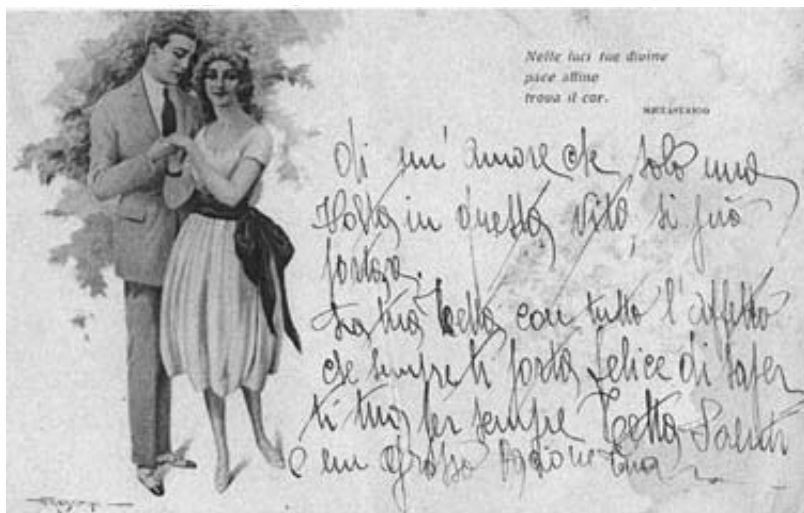 Nelle luci tue divine
pace affine
trova il cor.
METASTASIO
di un' amore che solo una
Volta in questa vita, si può
portare.
La tua Betta con tutto l'affetto
che sempre ti porta felice di saper
ti tua per sempre Betta Saluti
e un grosso bacione tua